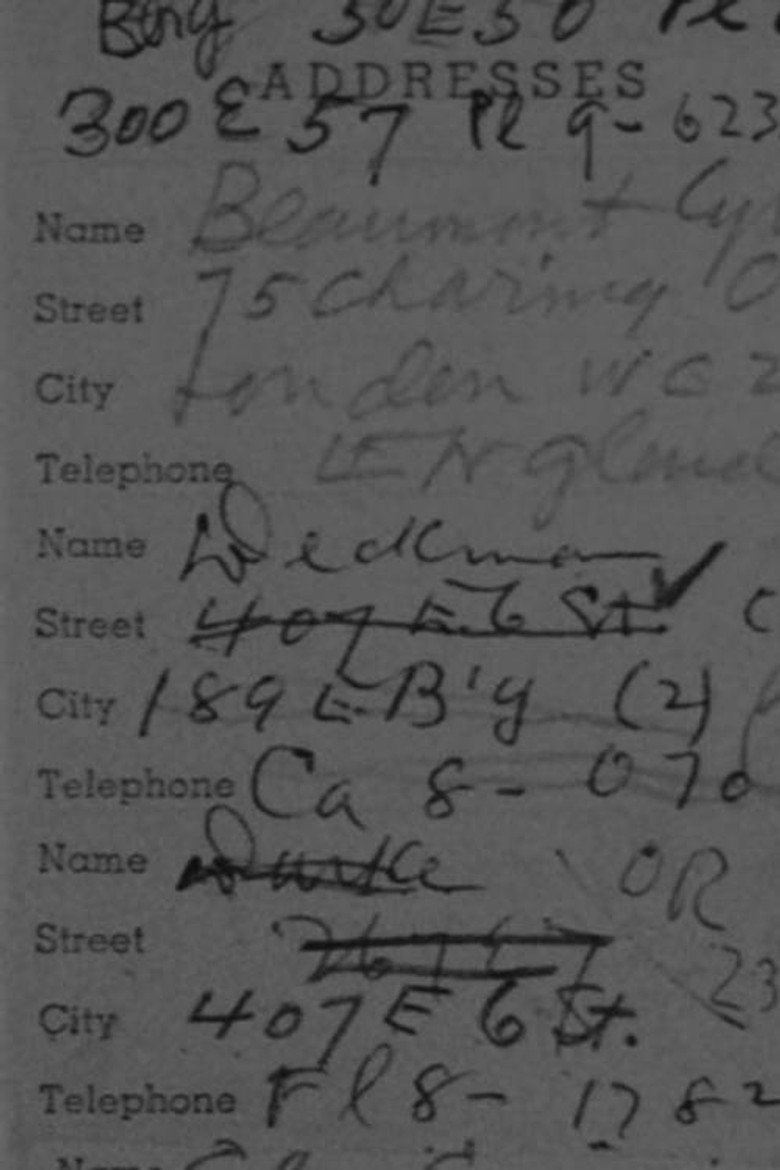 30 E 30 Pl
ADDRESSES
300 E 57 Pl 9-623
Name Beaumont Cy
Street 75 Charing
City London WC2
Telephone England
Name
Street 407 E 6 St
City 189 E B'y (2)
Telephone Ca 8-070
Name OR
Street
23
City 407 E 6 St.
Telephone Fl 8-1782